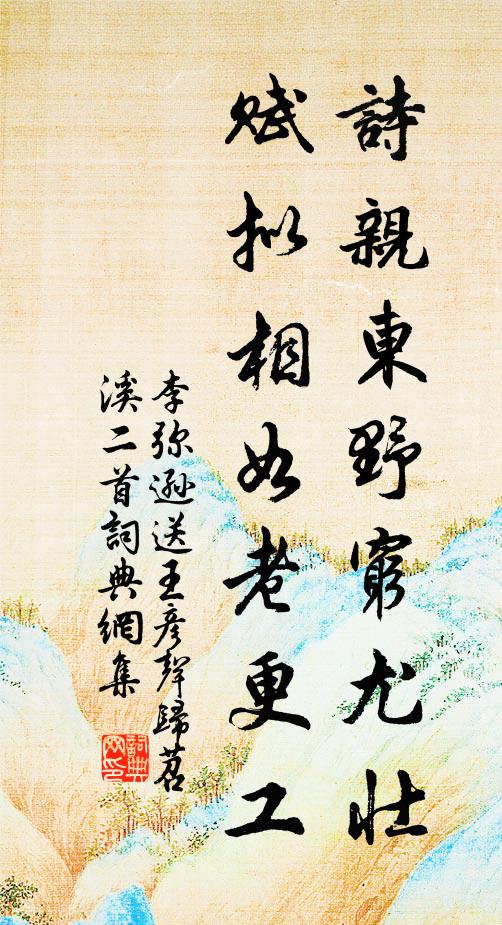 詩親東野窮尤壯
賦擬相如老更工
李弥遜送王彦聲歸苕
溪二首詞典網集
詞典
网印